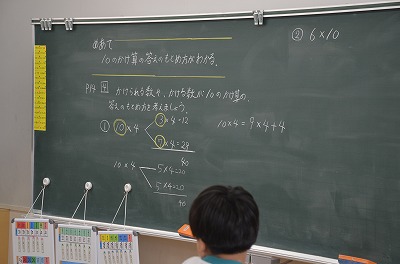 めあて
10のかけ算の答えのもとめ方がわかる。
P14 4 かけられる数や、かける数が10のかけ算の、
答えのもとめ方を考えましょう。
① 10×4
3×4=12
7×4=28
40
10×4
5×4=20
5×4=20
40
10×4=9×4+4
② 6×10